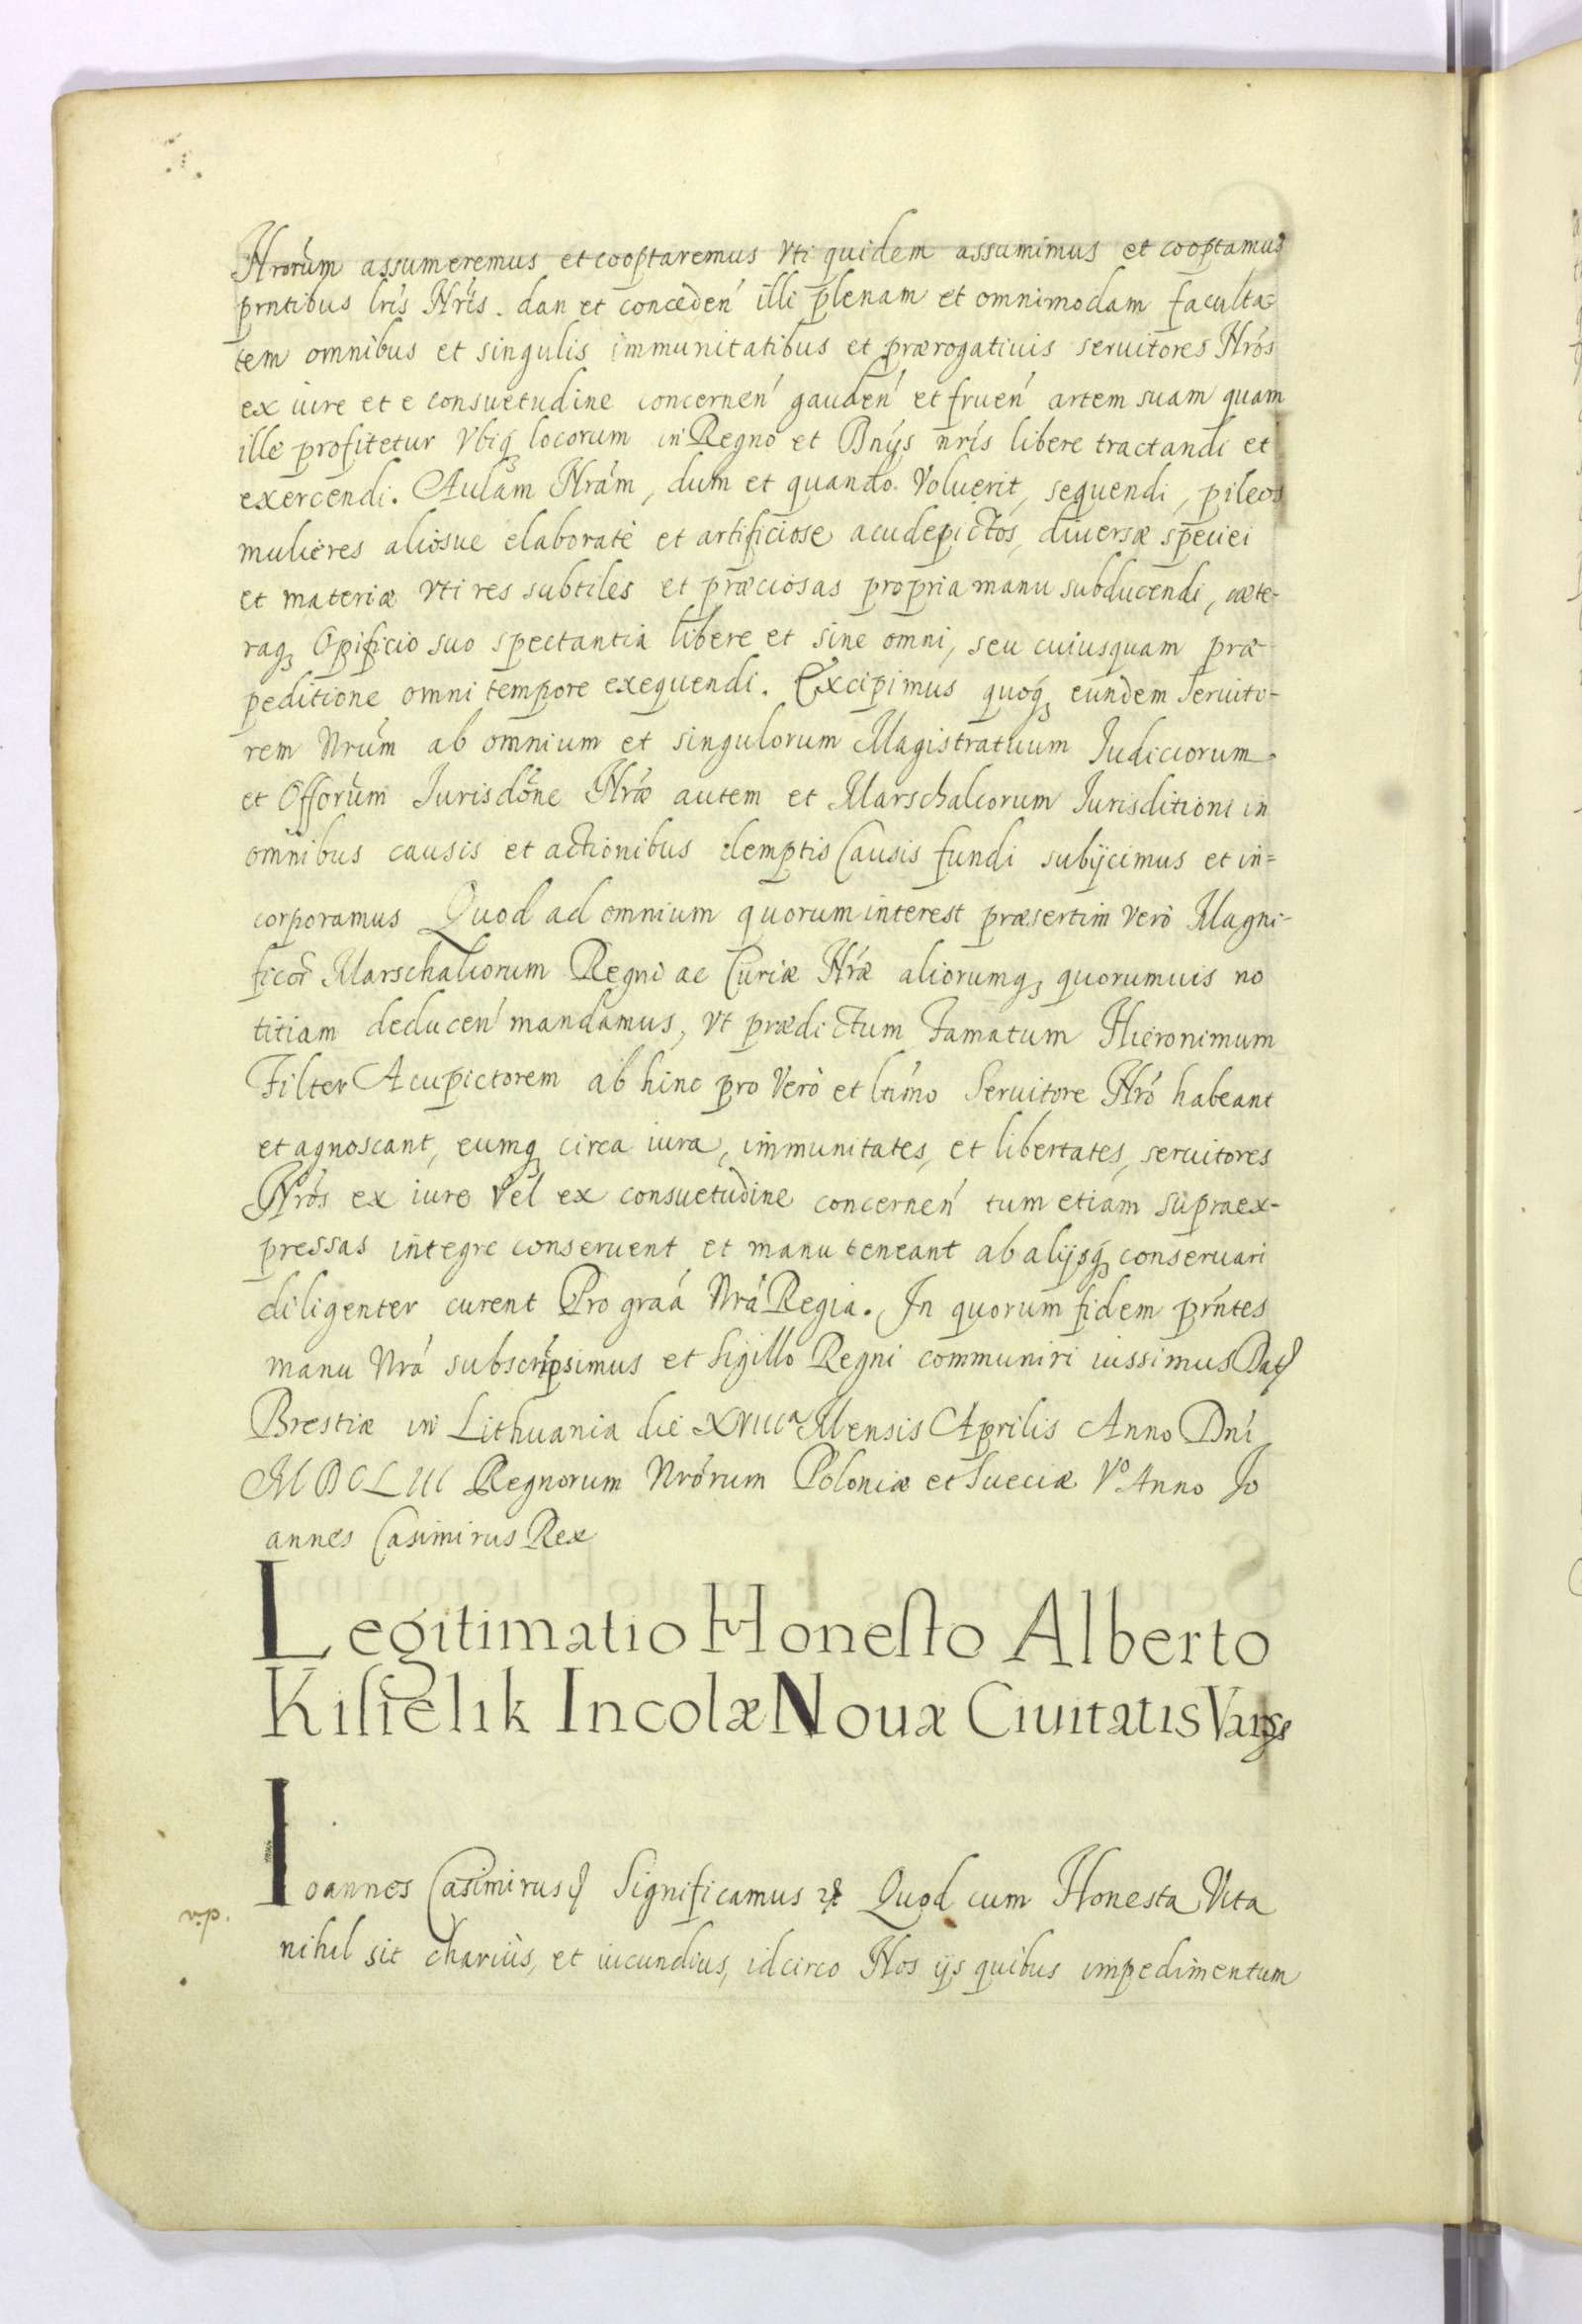 Nrorum assumeremus et cooptaremus vti quidem assumimus et cooptamus
prntibus lris Nris. dan et conceden illi plenam et omnimodam faculta=
tem omnibus et singulis immunitatibus et prærogatiuis seruitores Nros
ex iure et e consuetudine concernen gauden et fruen artem suam quam
ille profitetur Vbiq locorum in Regno et Dnijs nris libere tractandi et
exercendi. Aulam Nram, dum et quando Voluerit, sequendi, pileos
mulieres aliosue elaboratè et artificiose acudepictos, diuersæ speciei
et materiæ vti res subtiles et præciosas propria manu subducendi, cæte-
raq Opificio suo spectantia libere et sine omni, seu cuiusquam præ-
peditione omni tempore exequendi. Excipimus quoq eundem Seruito-
rem Nrum ab omnium et singulorum Magistratuum Iudiciorum
et Offorum Iurisdone Nræ autem et Marschalcorum Iurisditioni in
omnibus causis et actionibus demptis Causis fundi subijcimus et in=
corporamus Quod ad omnium quorum interest præsertim verò Magni-
ficor Marschalcorum Regni ac Curiæ Nræ aliorumq quorumuis no
titiam deducen mandamus, vt prædictum Famatum Hieronimum
Filter Acupictorem ab hinc pro Verò et ltimo Seruitore Nro habeant
et agnoscant, eumq circa iura, immunitates, et libertates, seruitores
Nros ex iure vel ex consuetudine concernen tum etiam supraex-
pressas integre conseruent et manu teneant ab alijsq conseruari
diligenter curent Pro graa Nra Regia. In quorum fidem prntes
manu Nra subscripsimus et Sigillo Regni communiri iussimus Dat
Brestiæ in Lithuania die XVIIIa Mensis Aprilis Anno Dni
MDCLIII Regnorum Nrorum Poloniæ et Sueciæ Vo Anno Jo
annes Casimirus Rex
Legitimatio Honesto Alberto
Kisielik Incolæ Nouæ Ciuitatis Vars
Ioannes Casimirus Significamus Quod cum Honesta Vita
nihil sit charius, et iucundius, idcirco Nos ijs quibus impedimentum